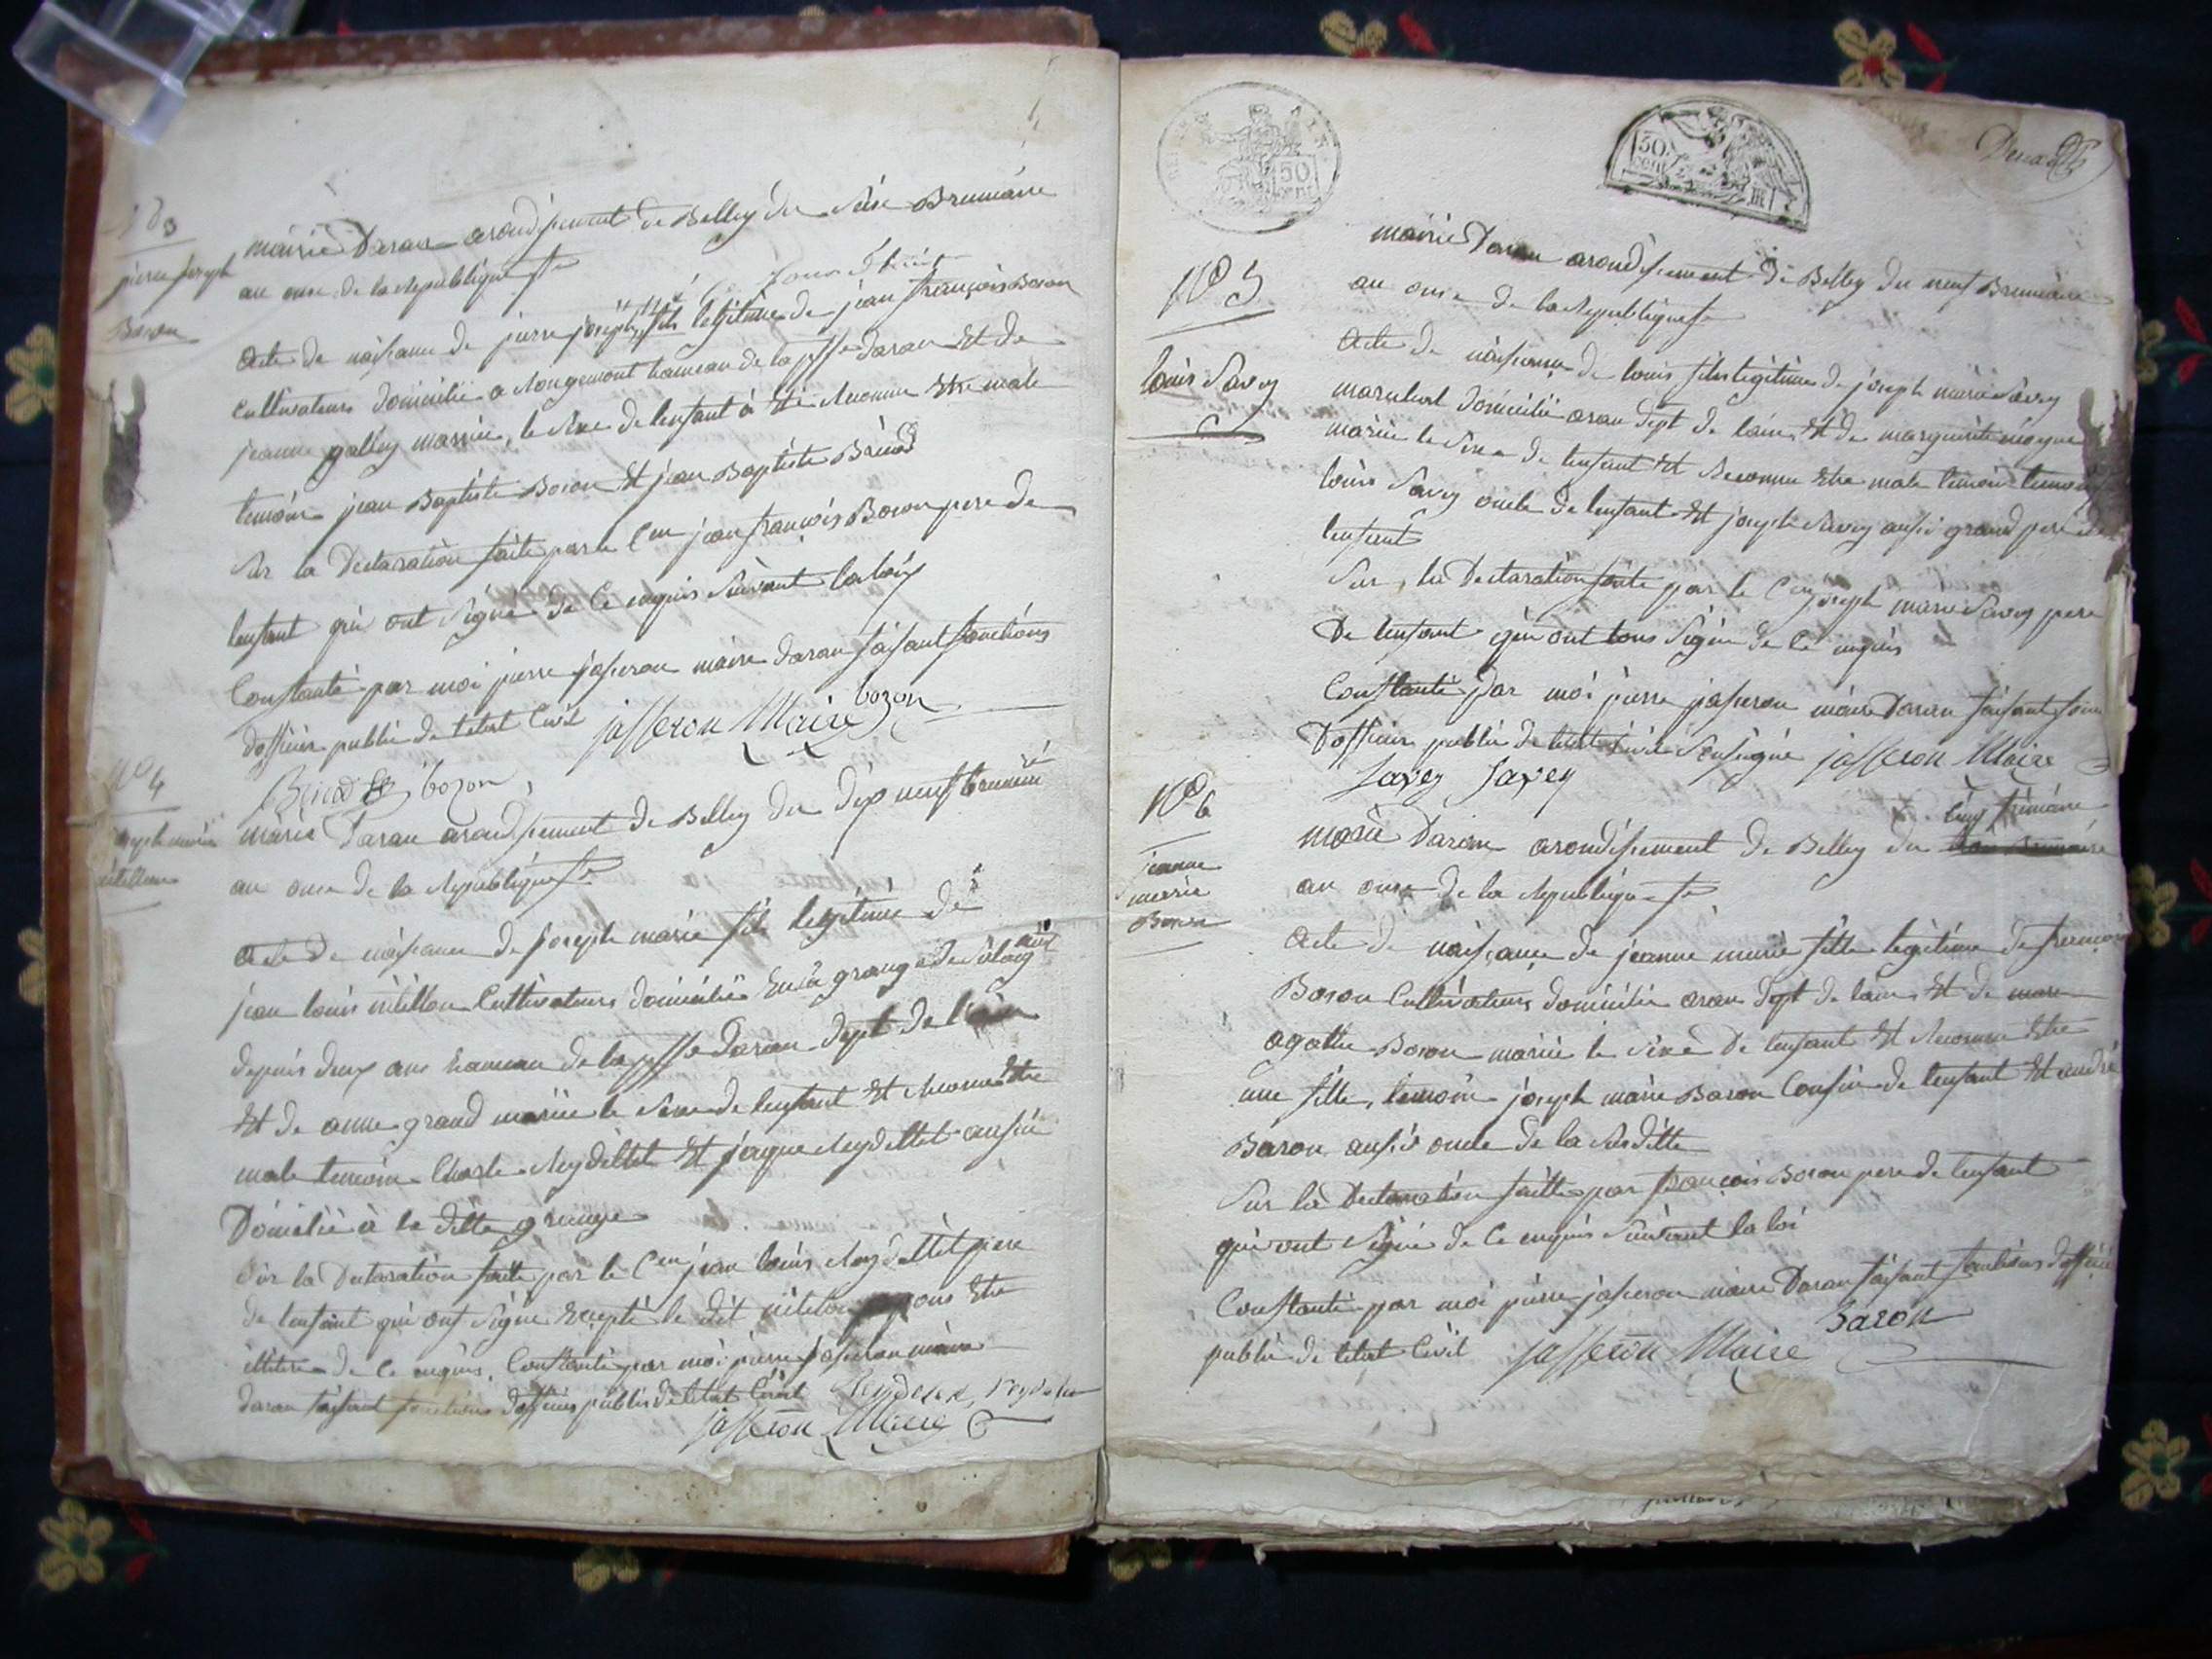 N° 3
pierre joseph
Boson
mairie Daran arondissement de Belley du seise Brumaire
an onse de la Republique fse
acte de naissance de pierre joseph, fils legitime de jean françois Boson
Cultivateurs domicilié a Rougemont hameau de la Daran Et de
jeanne galley mariée, le sexe de lenfant à été reconnu Etre male
temoin jean Baptiste Boson Et jean Baptiste Bénod
sur la Declaration faite par le Cen jean françois Boson pere de
lenfant qui ont signé de ce enquis suivant la loix
Constaté par moi pierre jasseron maire daran faisant fonctions
dofficier public de letat Civil jasseron Maire bozon
Bénod bozon
N° 4
joseph marie
mairie Daran arondissement de Belley du dix neuf brumaire
an onse de la Republique fse
acte de naissance de joseph marie fils legitime de
jean louis Cultivateurs domicilié En la grange de
depuis deux ans hameau de la Daran dept de lain
Et de anne grand mariée le sexe de lenfant Et reconnu Etre
male temoin Charle Reydellet Et jacque Reydellet aussi
Domicilié à la ditte grange
sur la Declaration faite par le Cen jean louis Reydellet pere
de lenfant qui ont signé Excepté le dit pour Etre
de ce enquis, Constaté par moi pierre jasseron maire
daran faisant fonctions dofficier public de letat Civil
jasseron Maire
REP FRA
50 cent
50 cent
N° 5
louis Savey
mairie Daran arondissement de Belley du neuf Brumaire
an onse de la Republique fse
Acte de naissance de louis fils legitime de joseph marie Savey
marechal domicilié aran dept de lain, Et de marguerite
mariée le sexe de lenfant Et Reconnu Etre male temoin
louis Savey oncle de lenfant Et joseph Savey aussi grand pere de
lenfant
Sur la Declaration faite par le Cen joseph marie Savey pere
De lenfant qui ont tous signé de ce enquis
Constaté par moi pierre jasseron maire Daran faisant fonc
Dofficier public de letat Civil Sousigné jasseron Maire
Savey Savey
N° 6
jeanne
marie
Boson
cinq frimaire
mairie Daran arondissement de Belley du
an onse de la Republique fse
Acte de naissance de jeanne marie fille legitime de francois
Boson Cultivateurs domicilié aran dept de lain, Et de marie
agathe Boson mariée le sexe De lenfant Et Reconnu Etre
une fille, temoin joseph marie Boson Cousin de lenfant Et andré
Boson aussi oncle de la susditte
Sur la Declaration faitte par françois Boson pere de lenfant
qui ont signé de ce enquis suivant la loi
Constaté par moi pierre jasseron maire Daran faisant fonctions dofficier
public de letat Civil jasseron Maire Bozon